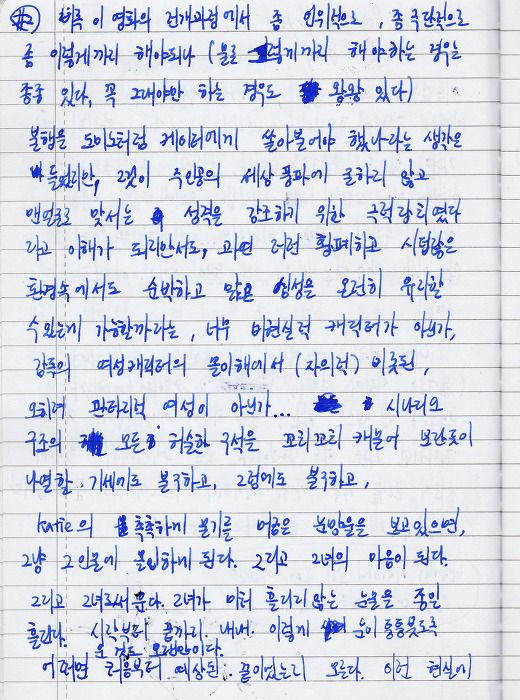 비록 이 영화의 전개과정에서 좀 인위적으로, 좀 극단적으로
좀 이렇게까지 해야되나 (물론 그렇게까지 해야하는 경우는
종종 있다, 꼭 그래야만 하는 경우도 왕왕 있다)
불행을 도미노처럼 케이티에게 쏟아부어야 했나라는 생각은
들었지만, 그것이 주인공의 세상 풍파에 굴하지 않고
맨몸으로 맞서는 성격을 강조하기 위한 극적장치였다
라고 이해가 되지만서도, 과연 저런 황폐하고 시덥잖은
환경속에서도 순박하고 맑은 심성을 온전히 유지할
수있는게 가능할까라는, 너무 비현실적 캐릭터가 아닌가,
감독의 여성캐릭터의 몰이해에서 (자의적) 비롯된,
오히려 판타지적 여성이 아닌가... 시나리오
구조의 모든 허술한 구석을 꼬치꼬치 캐물어 보란듯이
나열할 기세에도 불구하고, 그럼에도 불구하고,
Katie의 촉촉하게 물기를 머금은 눈망울을 보고있으면,
그냥 그 인물에 몰입하게 된다. 그리고 그녀의 마음이 된다.
그리고 그녀로써 운다. 그녀가 미처 흘리지 않는 눈물을 줄인
흘린다. 시작부터 끝까지. 내내. 이렇게 눈이 퉁퉁붓도록
운 것도 오랜만이다.
어쩌면 처음부터 예상된 끝이었는지 모른다. 이런 현실에